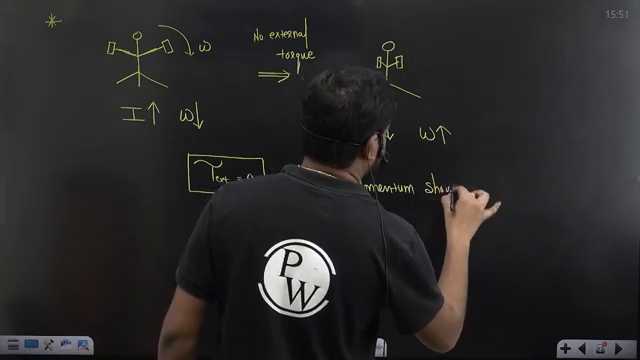 15:51
*
ω
No external
torque
I↑ ω↓
↓ ω↑
τext = 0
momentum sho
P
W